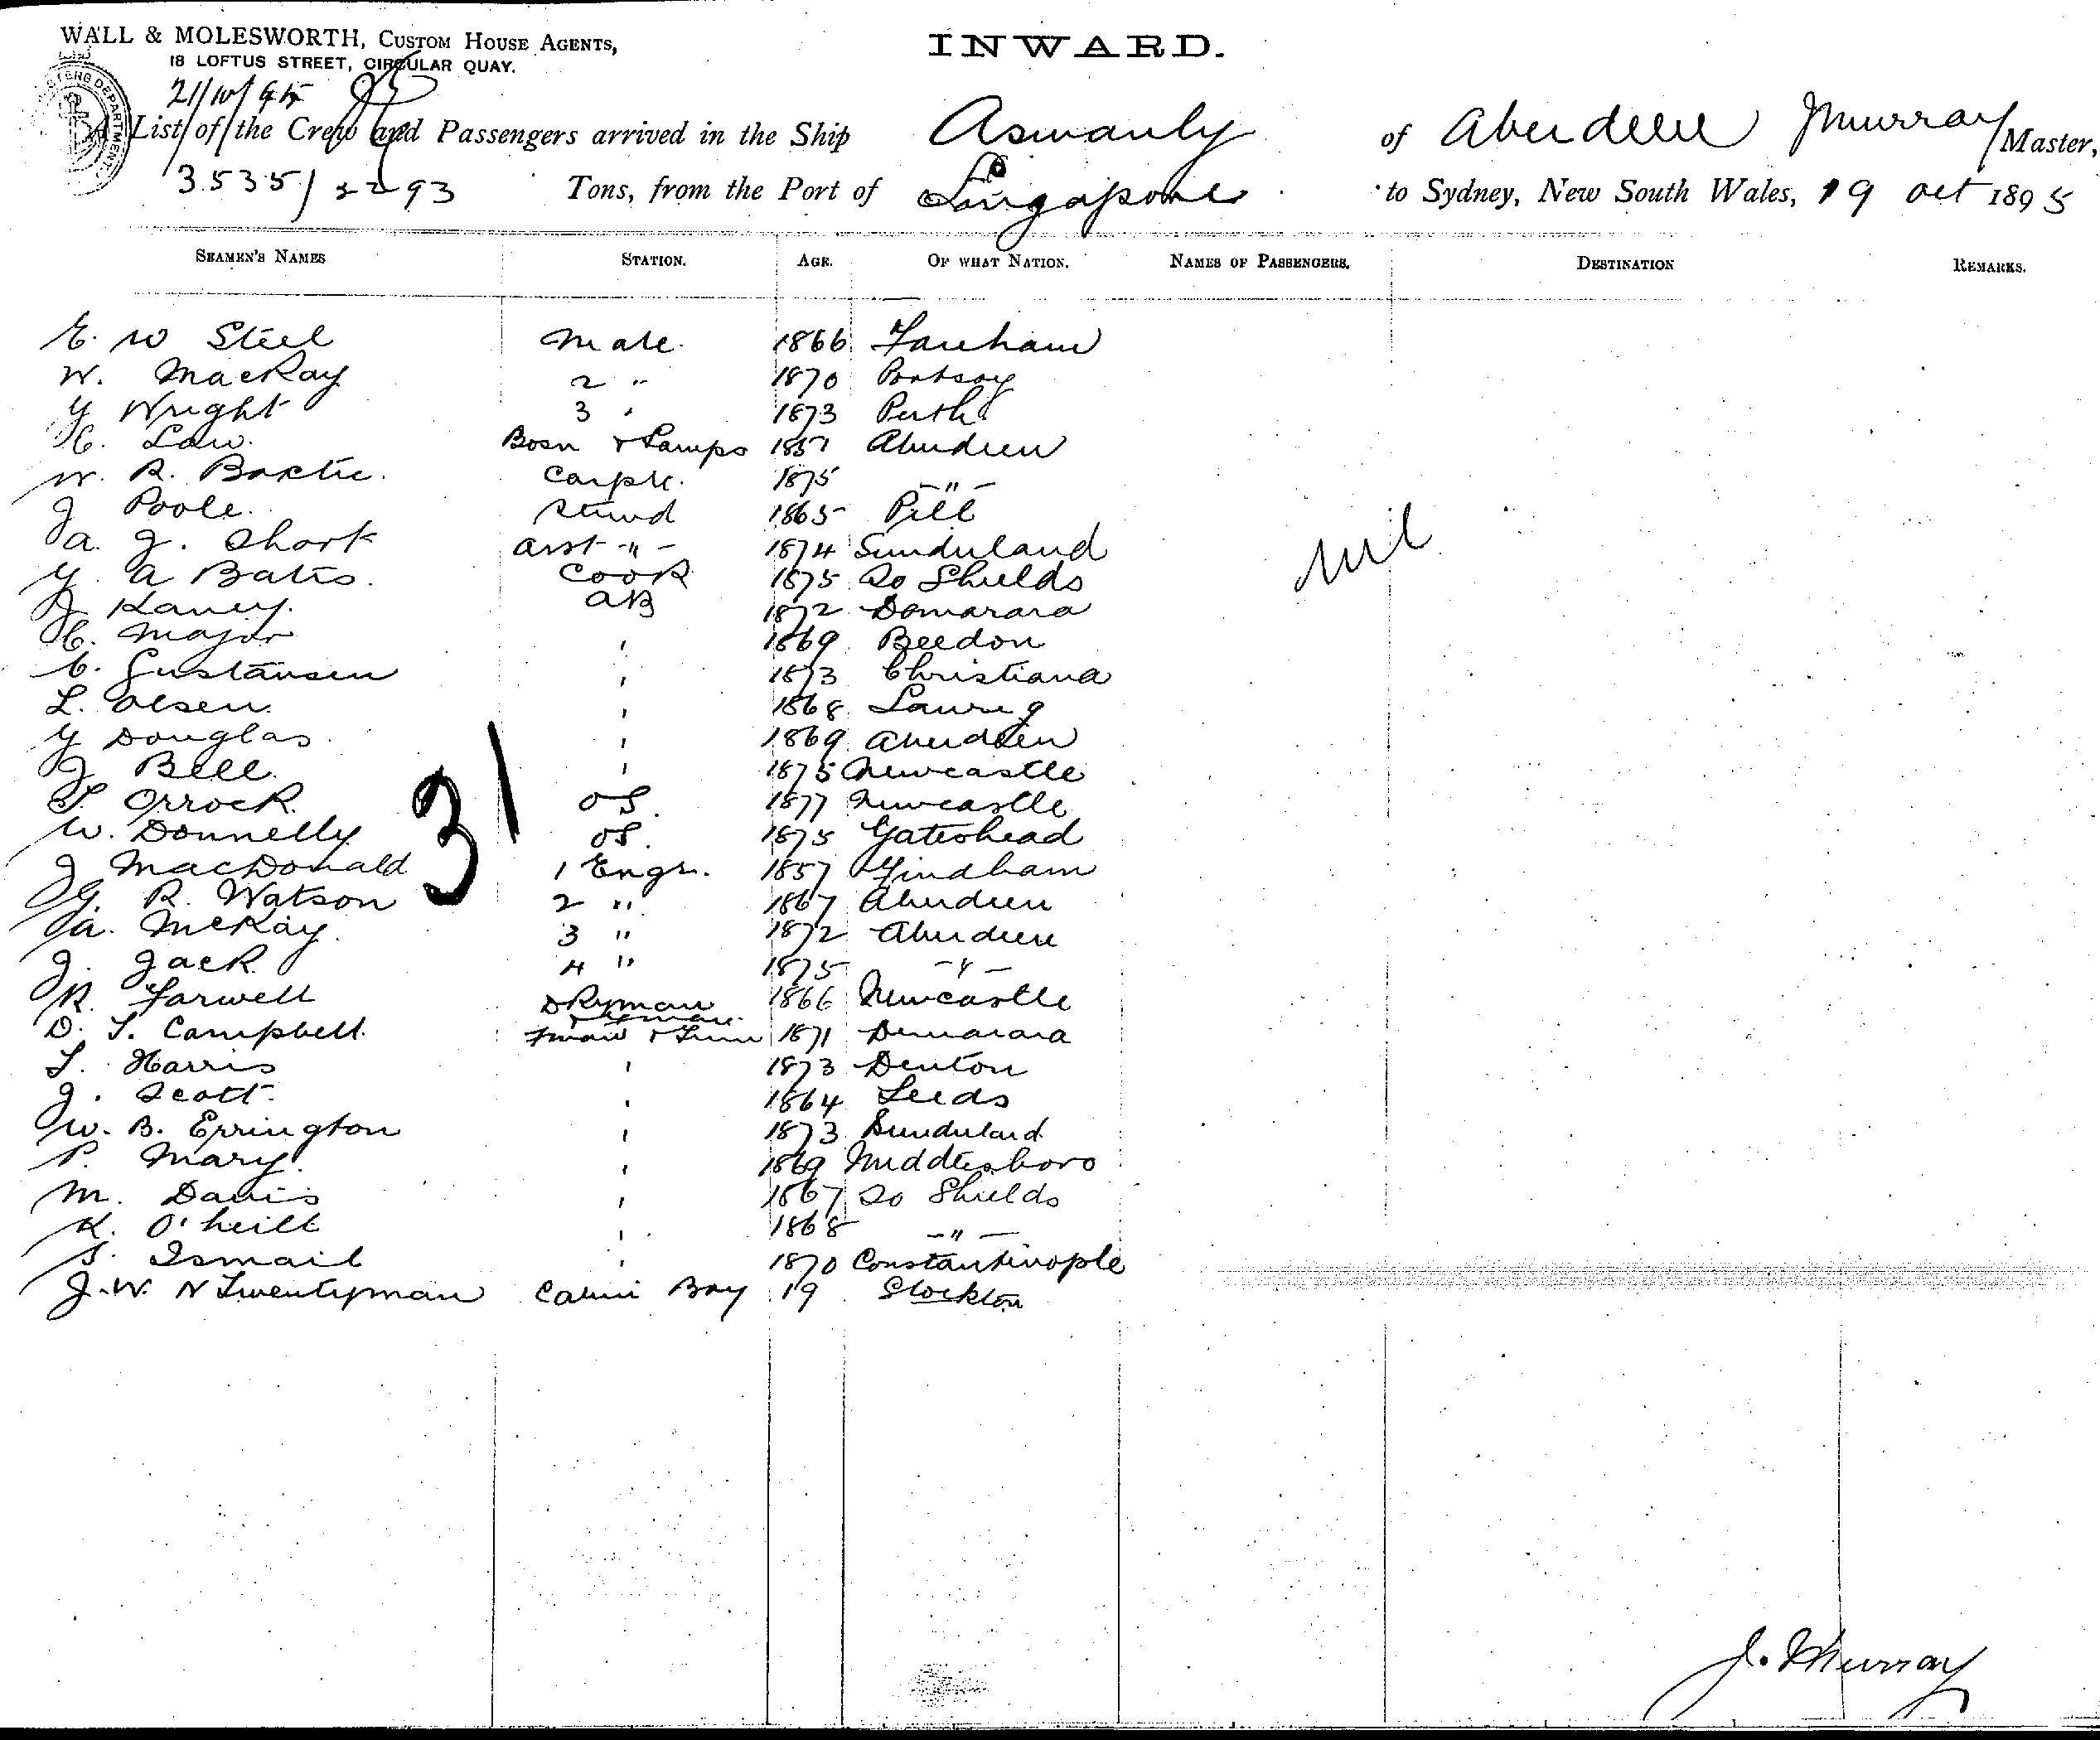 WALL & MOLESWORTH, CUSTOM HOUSE AGENTS,
18 LOFTUS STREET, CIRCULAR QUAY.
INWARD.
21/10/95
A List of the Crew and Passengers arrived in the Ship Asmanly of Aberdeen J Murray Master,
3535/2293 Tons, from the Port of Singapore to Sydney, New South Wales, 19 Oct 1895
SEAMEN'S NAMES STATION. AGE. OF WHAT NATION. NAMES OF PASSENGERS. DESTINATION REMARKS.
E. W Steel Mate. 1866 Fareham
W. MacKay 2 " 1870 Portsoy
G Wright 3 " 1873 Perth
C. Law. Bosn & Lamps 1857 Aberdeen
W. R. Baxter. Carptr. 1875 -"-
J Poole. Steward 1865 Pill
A. J. Short Asst -"- 1874 Sunderland
G. A Bates. Cook 1875 So Shields
J Haney. AB 1872 Demarara
C. Major " 1869 Beedon
C. Gustavsen " 1873 Christiana
L. Olsen. " 1868 Laurig
G Douglas " 1869 Aberdeen
J Bell " 1875 Newcastle
T Orrock. OS. 1877 Newcastle
W. Donnelly OS. 1875 Gateshead
J MacDonald 1 Engr. 1857 Windham
G. R. Watson 2 " 1867 Aberdeen
A. McKay. 3 " 1872 Aberdeen
J. Jack 4 " 1875 -"-
R. Farwell DKyman 1866 Newcastle
D. T. Campbell. Fman & Trim 1871 Demarara
T. Harris " 1873 Denton
J. Scott. " 1864 Leeds
W. B. Errington " 1873 Sunderland
P. Mary. " 1869 Middlesboro
M. Davis " 1867 So Shields
K. O'Neill " 1868 -"-
S. Ismail " 1870 Constantinople
J. W. N Twentyman Cabin Boy 19 Stockton
31
Nil
J. Murray